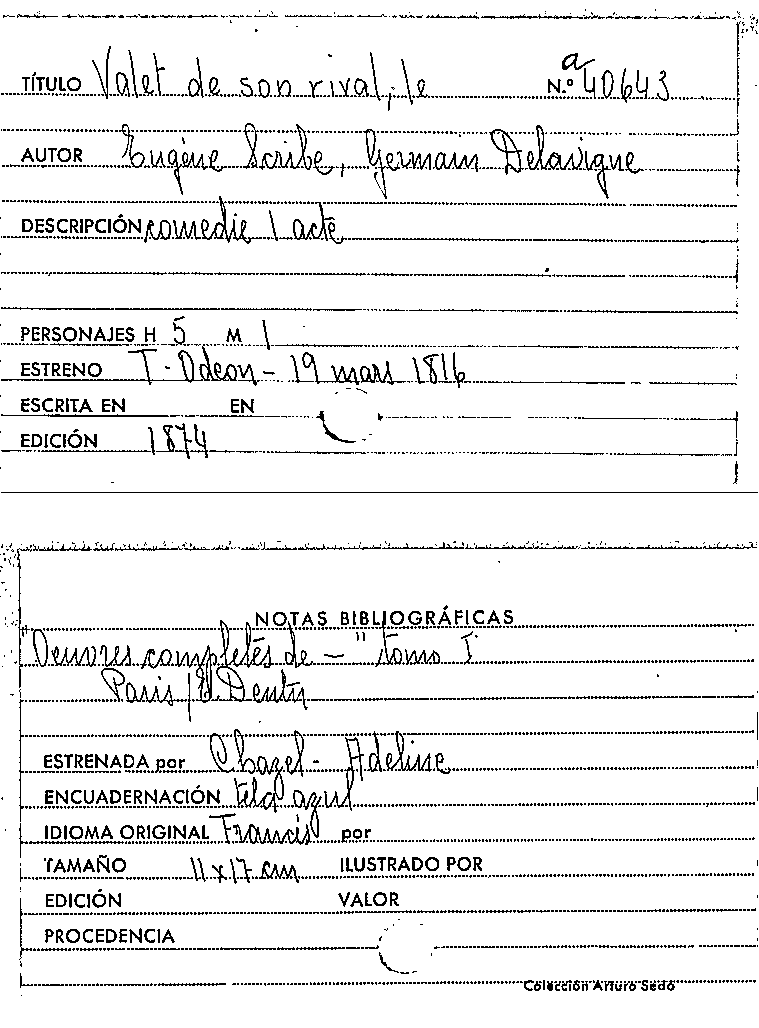 TÍTULO Valet de son rival, le N.º a 40643
AUTOR Eugène Scribe, Germain Delavigne
DESCRIPCIÓN comedie 1 acte
PERSONAJES H 5 M 1
ESTRENO T. Odeon - 19 mars 1816
ESCRITA EN EN
EDICIÓN 1874
NOTAS BIBLIOGRÁFICAS
"Oeuvres completès de — " tomo I
Paris / E. Dentu
ESTRENADA por Chazel - Adeline
ENCUADERNACIÓN tela azul
IDIOMA ORIGINAL Francés por
TAMAÑO 11 x 17 cm ILUSTRADO POR
EDICIÓN VALOR
PROCEDENCIA
Colección Arturo Sedó